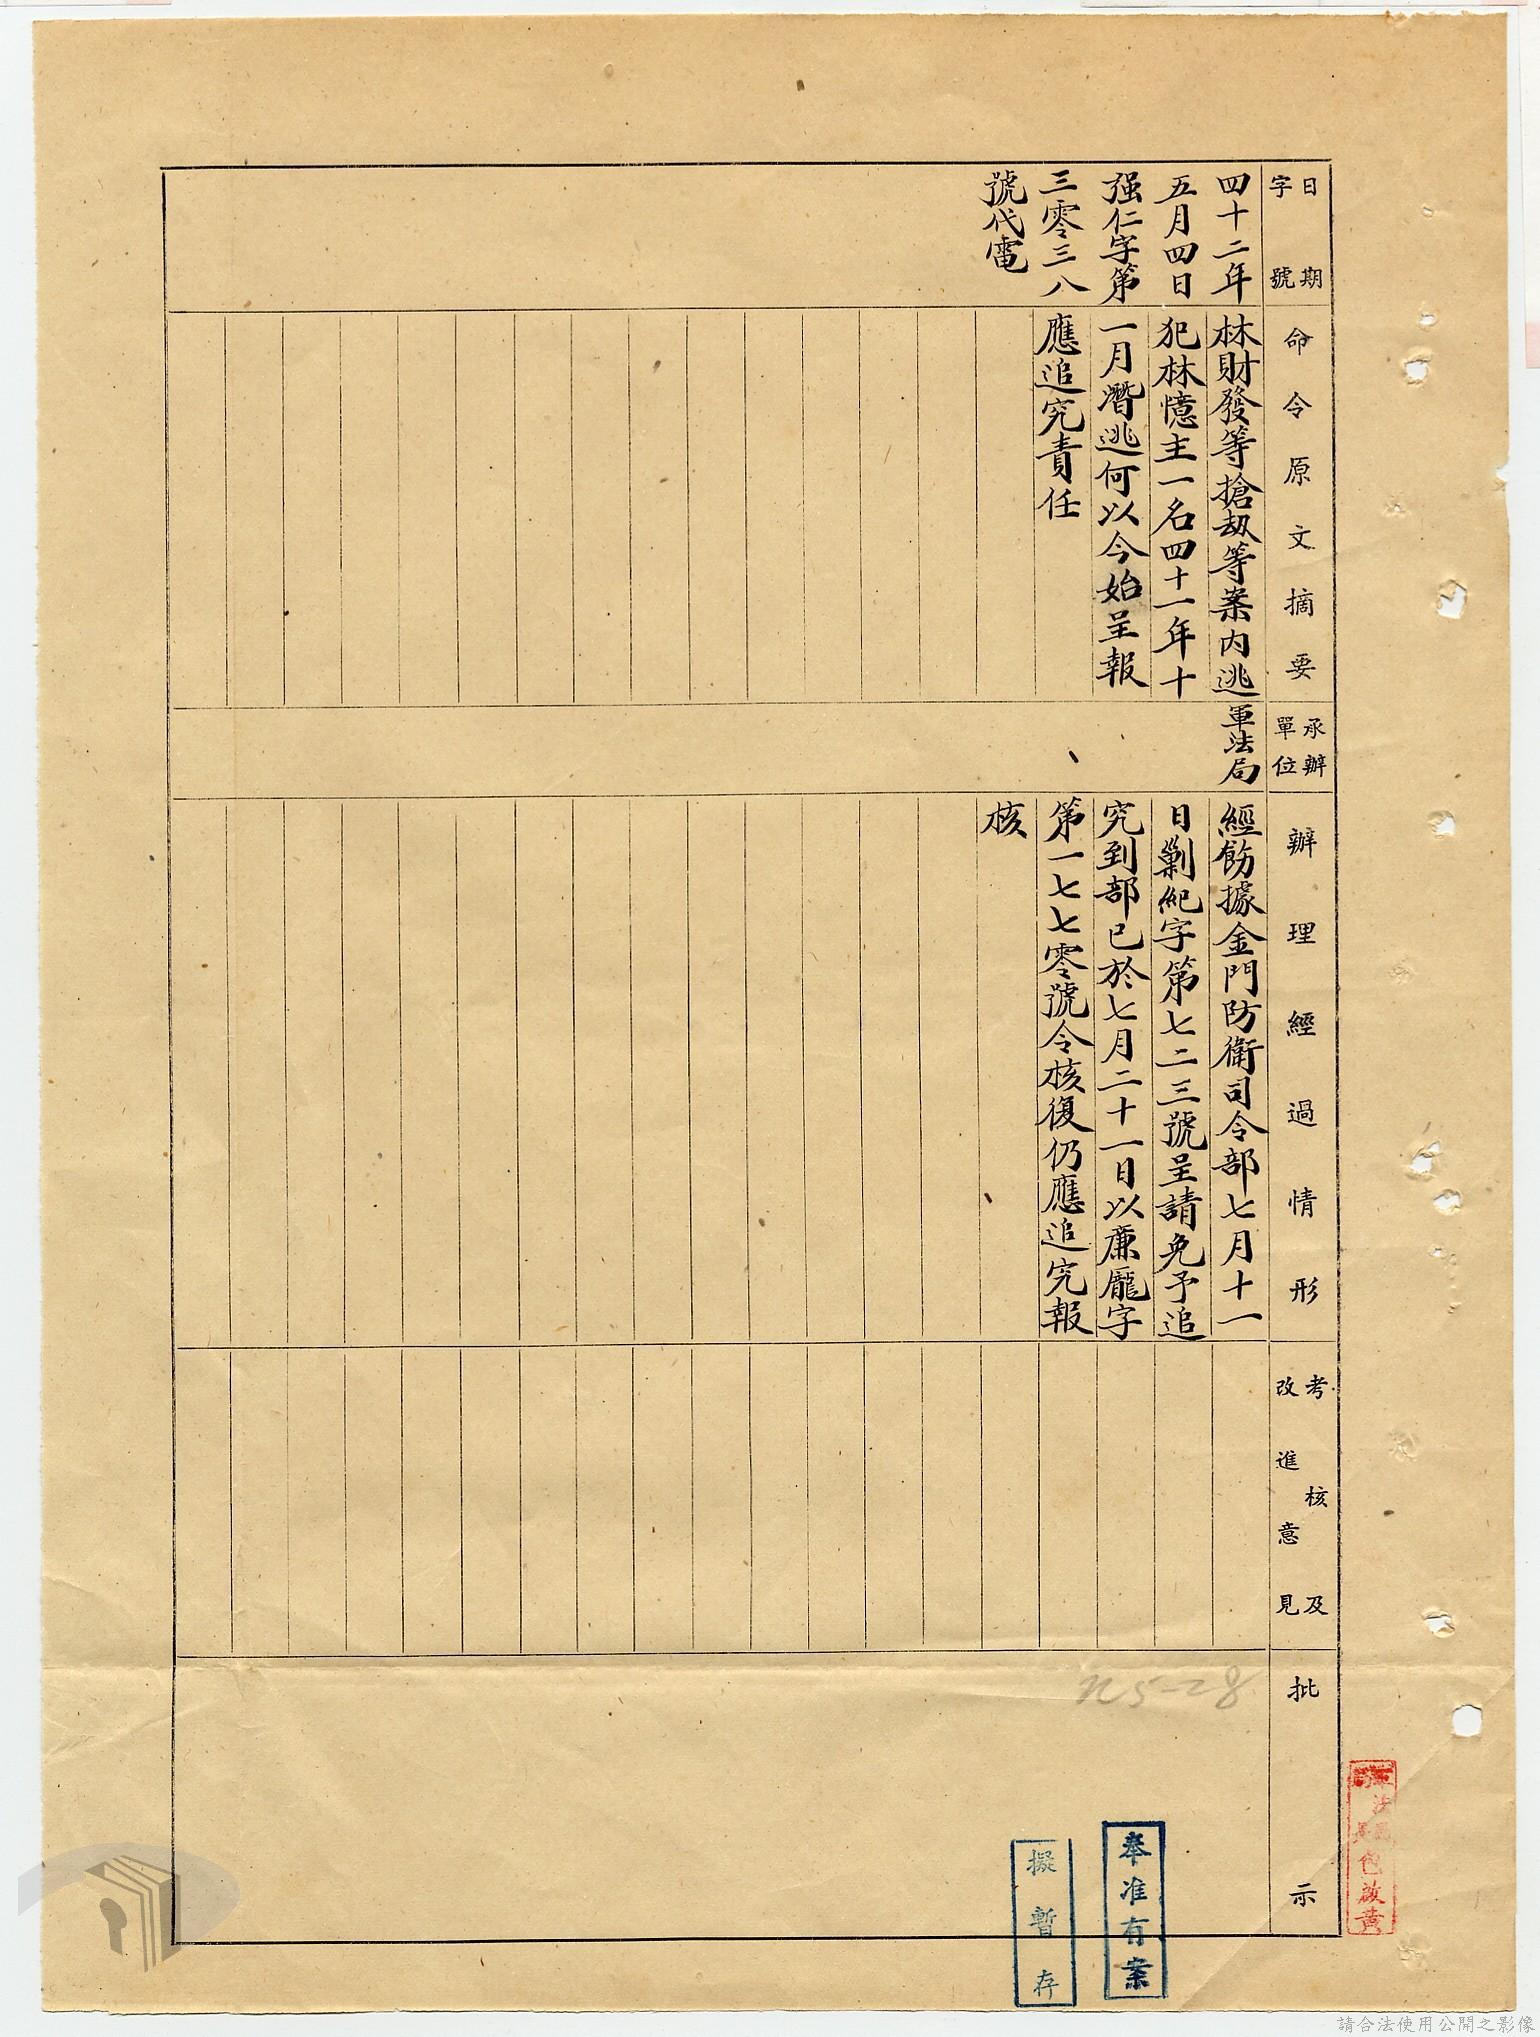 日期
字號
四十二年
五月四日
强仁字第
三零三八
號代電
命令原文摘要
林財發等搶刼等案內逃
犯林憶主一名四十一年十
一月潛逃何以今始呈報
應追究責任
承辦
單位
軍法局
辦理經過情形
經飭據金門防衛司令部七月十一
日剿紀字第七二三號呈請免予追
究到部已於七月二十一日以廉龐字
第一七七零號令核復仍應追究報
核
考核及
改進意見
批示
奉准有案
擬暫存
請合法使用公開之影像